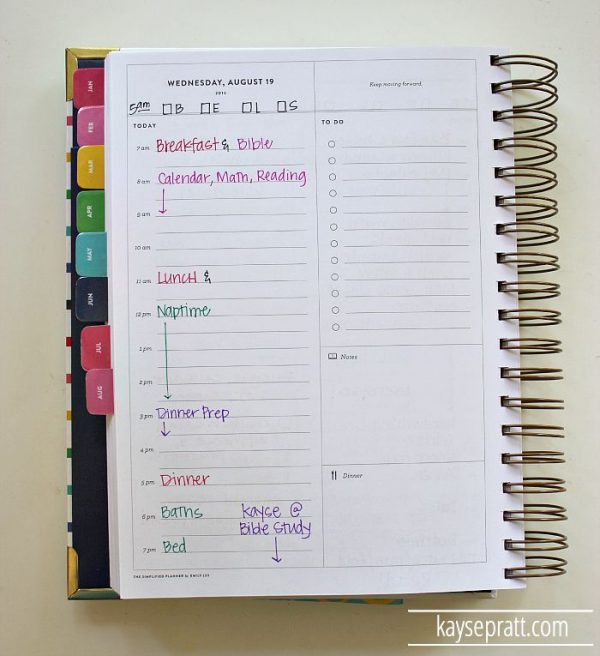 WEDNESDAY, AUGUST 19
2015
Keep moving forward.
5am □B □E □L □S
TODAY
7 am Breakfast & Bible
8 am Calendar, Math, Reading
9 am
10 am
11 am Lunch &
12 pm Naptime
1 pm
2 pm
3 pm Dinner Prep
4 pm
5 pm Dinner
6 pm Baths
7 pm Bed
Kayse @
Bible Study
TO DO
Notes
Dinner
THE SIMPLIFIED PLANNER by EMILY LEY
JAN
FEB
MAR
APR
MAY
JUN
JUL
AUG
kaysepratt.com